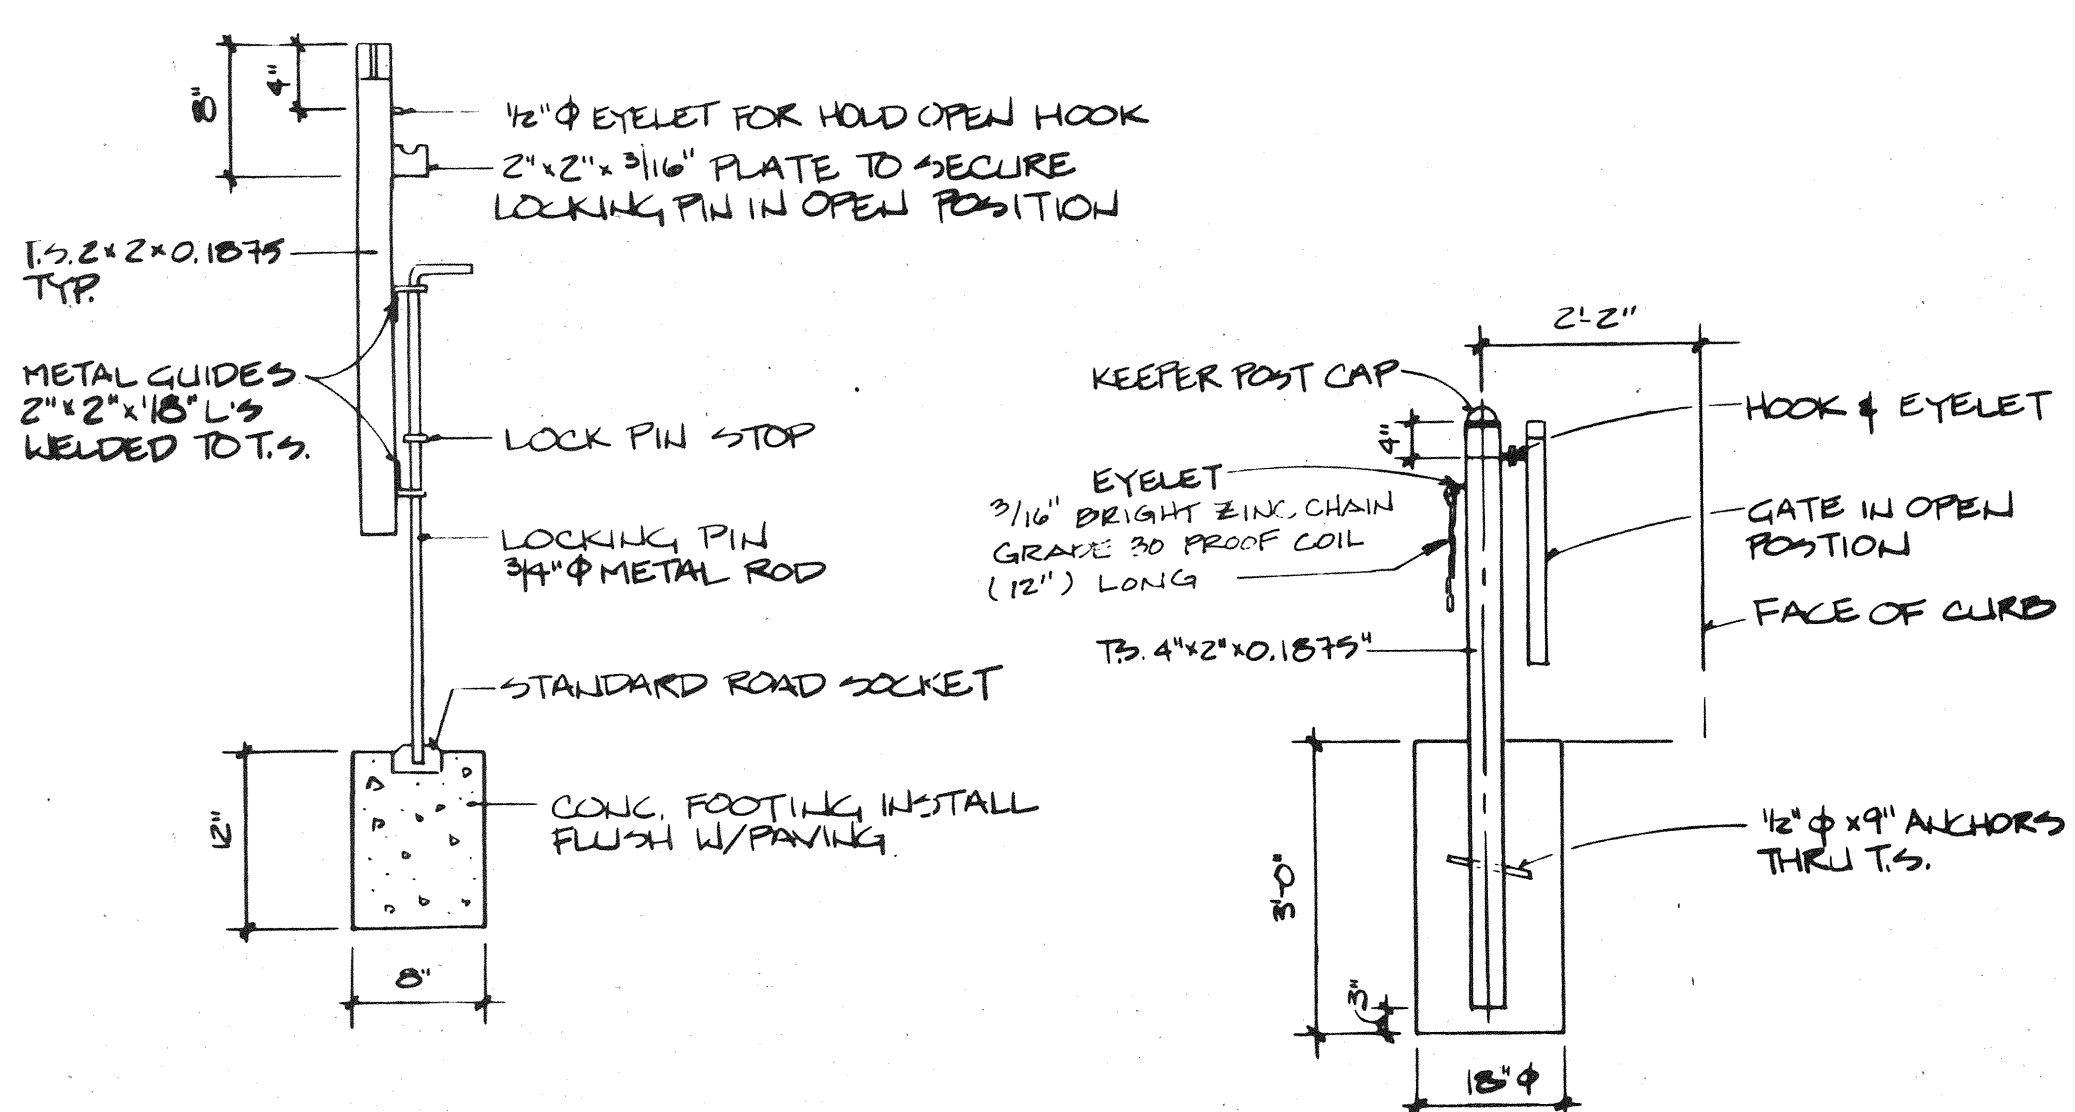 8"
4"
1/2" Φ EYELET FOR HOLD OPEN HOOK
2" x 2" x 3/16" PLATE TO SECURE
LOCKING PIN IN OPEN POSITION
T.S. 2 x 2 x 0.1875
TYP.
METAL GUIDES
2" x 2" x 1/8" L'S
WELDED TO T.S.
LOCK PIN STOP
LOCKING PIN
3/4" Φ METAL ROD
STANDARD ROAD SOCKET
CONC. FOOTING INSTALL
FLUSH W/PAVING
12"
8"
2'-2"
KEEPER POST CAP
HOOK & EYELET
4"
EYELET
3/16" BRIGHT ZINC CHAIN
GRADE 30 PROOF COIL
(12") LONG
GATE IN OPEN
POSTION
FACE OF CURB
T.S. 4" x 2" x 0.1875"
1/2" Φ x 9" ANCHORS
THRU T.S.
3'-0"
3"
18" Φ